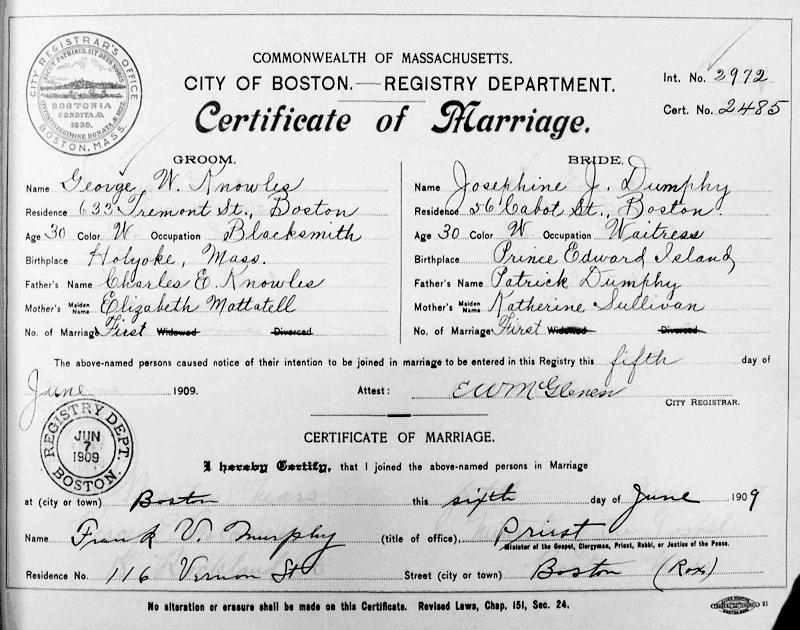 COMMONWEALTH OF MASSACHUSETTS.
CITY OF BOSTON.—REGISTRY DEPARTMENT.
Certificate of Marriage.
Int. No. 2972
Cert. No. 2485
CITY REGISTRAR'S OFFICE
BOSTON, MASS.
SICUT PATRIBUS SIT DEUS NOBIS
BOSTONIA
CONDITA, A.D.
1630.
CIVITATIS REGIMINE DONATA, A.D. 1822
GROOM.
Name George W. Knowles
Residence 633 Tremont St., Boston
Age 30 Color W Occupation Blacksmith
Birthplace Holyoke, Mass.
Father's Name Charles E. Knowles
Mother's Maiden Name Elizabeth Mattatell
No. of Marriage First Widowed Divorced
BRIDE.
Name Josephine J. Dumphy
Residence 56 Cabot St., Boston.
Age 30 Color W Occupation Waitress
Birthplace Prince Edward Island
Father's Name Patrick Dumphy
Mother's Maiden Name Katherine Sullivan
No. of Marriage First Widowed Divorced
The above-named persons caused notice of their intention to be joined in marriage to be entered in this Registry this fifth day of
June 1909. Attest: E W McGlenen
CITY REGISTRAR.
REGISTRY DEPT.
JUN
7
1909
BOSTON.
CERTIFICATE OF MARRIAGE.
I hereby Certify, that I joined the above-named persons in Marriage
at (city or town) Boston this sixth day of June 1909
Name Frank V. Murphy (title of office), Priest
Minister of the Gospel, Clergyman, Priest, Rabbi, or Justice of the Peace.
Residence No. 116 Vernon St Street (city or town) Boston (Rox)
No alteration or erasure shall be made on this Certificate. Revised Laws, Chap. 151, Sec. 24.
21